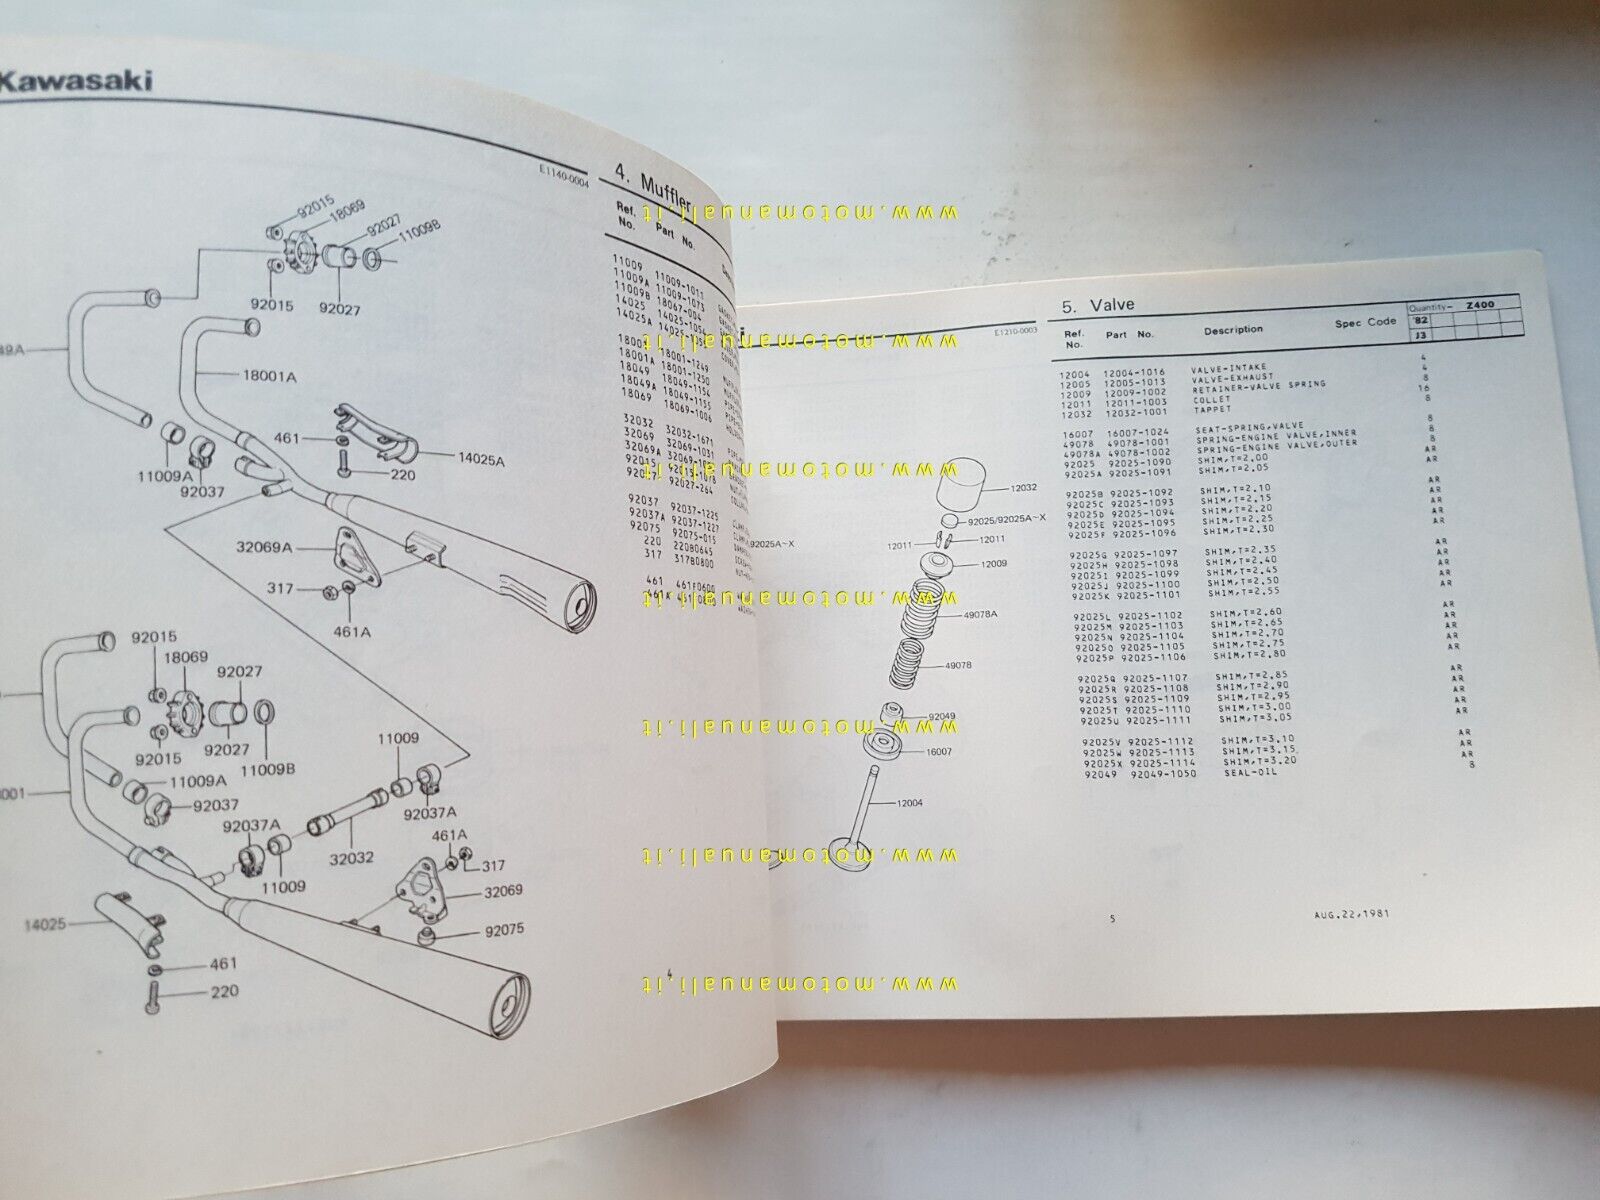 Kawasaki
E1140-0004
92015
18069
92027
11009B
92015
92027
49A
18001A
461
220
14025A
11009A
92037
32069A
317
461A
92015
18069
92027
92015
92027
11009B
11009A
92037
11009
92037A
92037A
32032
11009
461A
317
32069
92075
14025
461
220
4. Muffler
Ref. No.
Part No.
11009 11009-1011
11009A 11009-1073
11009B 18067-004
14025
14025A
18001A 18001-1250
18049 18049-1154
18049A 18049-1155
18069 18069-1006
32032 32032-1671
32069 32069-1031
32069A
92015
92027 92027-264
92037 92037-1225
92037A 92037-1227
92075 92075-015
220 220B0645
317 317B0800
461 461F0600
4
www.motomanuali.it
www.motomanuali.it
www.motomanuali.it
www.motomanuali.it
www.motomanuali.it
www.motomanuali.it
E1210-0003
92025A~X
12032
92025/92025A~X
12011
12011
12009
49078A
49078
92049
16007
12004
5. Valve
Ref. No. Part No. Description Spec Code
Quantity- Z400
'82
J3
12004 12004-1016 VALVE-INTAKE 4
12005 12005-1013 VALVE-EXHAUST 4
12009 12009-1002 RETAINER-VALVE SPRING 8
12011 12011-1003 COLLET 16
12032 12032-1001 TAPPET 8
16007 16007-1024 SEAT-SPRING,VALVE 8
49078 49078-1001 SPRING-ENGINE VALVE,INNER 8
49078A 49078-1002 SPRING-ENGINE VALVE,OUTER 8
92025 92025-1090 SHIM,T=2.00 AR
92025A 92025-1091 SHIM,T=2.05 AR
92025B 92025-1092 SHIM,T=2.10 AR
92025C 92025-1093 SHIM,T=2.15 AR
92025D 92025-1094 SHIM,T=2.20 AR
92025E 92025-1095 SHIM,T=2.25 AR
92025F 92025-1096 SHIM,T=2.30 AR
92025G 92025-1097 SHIM,T=2.35 AR
92025H 92025-1098 SHIM,T=2.40 AR
92025I 92025-1099 SHIM,T=2.45 AR
92025J 92025-1100 SHIM,T=2.50 AR
92025K 92025-1101 SHIM,T=2.55 AR
92025L 92025-1102 SHIM,T=2.60 AR
92025M 92025-1103 SHIM,T=2.65 AR
92025N 92025-1104 SHIM,T=2.70 AR
92025O 92025-1105 SHIM,T=2.75 AR
92025P 92025-1106 SHIM,T=2.80 AR
92025Q 92025-1107 SHIM,T=2.85 AR
92025R 92025-1108 SHIM,T=2.90 AR
92025S 92025-1109 SHIM,T=2.95 AR
92025T 92025-1110 SHIM,T=3.00 AR
92025U 92025-1111 SHIM,T=3.05 AR
92025V 92025-1112 SHIM,T=3.10 AR
92025W 92025-1113 SHIM,T=3.15 AR
92025X 92025-1114 SHIM,T=3.20 AR
92049 92049-1050 SEAL-OIL 8
5
AUG.22,1981